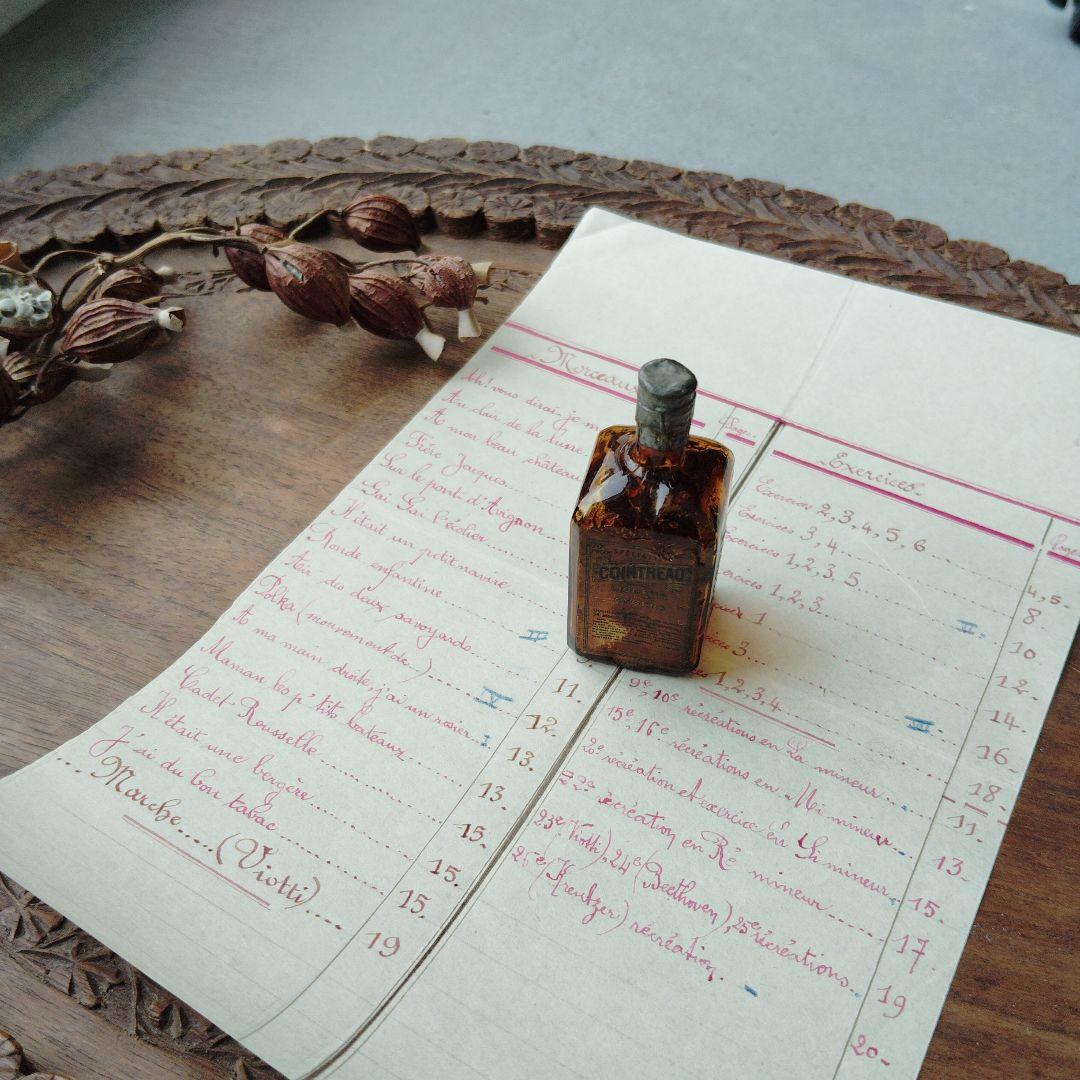 Morceaux
Pages.
Ah! vous dirai-je m
Au clair de la lune
A mon beau château
Frère Jacques
Sur le pont d'Avignon
Gai Gai l'écolier
Il était un petit navire
Ronde enfantine
Air des deux savoyards IV
Polka (mouvement de) 11.
A ma main droite, j'ai un rosier V 12.
Maman les p'tits bateaux I 13.
Cadet-Rousselle 13.
Il était une bergère 15.
J'ai du bon tabac 15.
Marche (Viotti) 15.
19
Exercices
Pages
Exercices 2, 3, 4, 5, 6 4, 5.
Exercices 3, 4 8
Exercices 1, 2, 3, 5 10
1, 2, 3 II. 12.
1 14.
3 16.
1, 2, 3, 4 III 18.
9e, 10e récréations en La mineur 11.
15e, 16e récréations en Mi mineur 13.
20e récréation et exercice en Si mineur 15.
22e récréation en Ré mineur 17
23e (Viotti), 24e (Beethoven), 25e récréations 19
25e (Kreutzer) récréation. 20.
COINTREAU